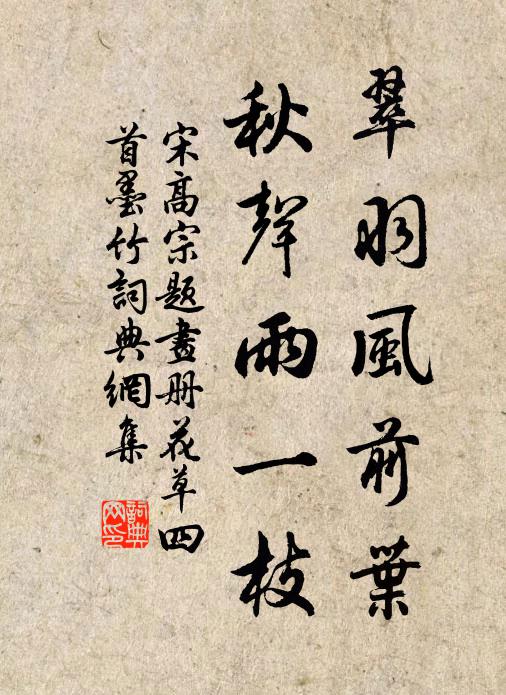 翠羽風前葉
秋聲雨一枝
宋高宗題畫册花草四
首墨竹詞典網集
詞典
网印